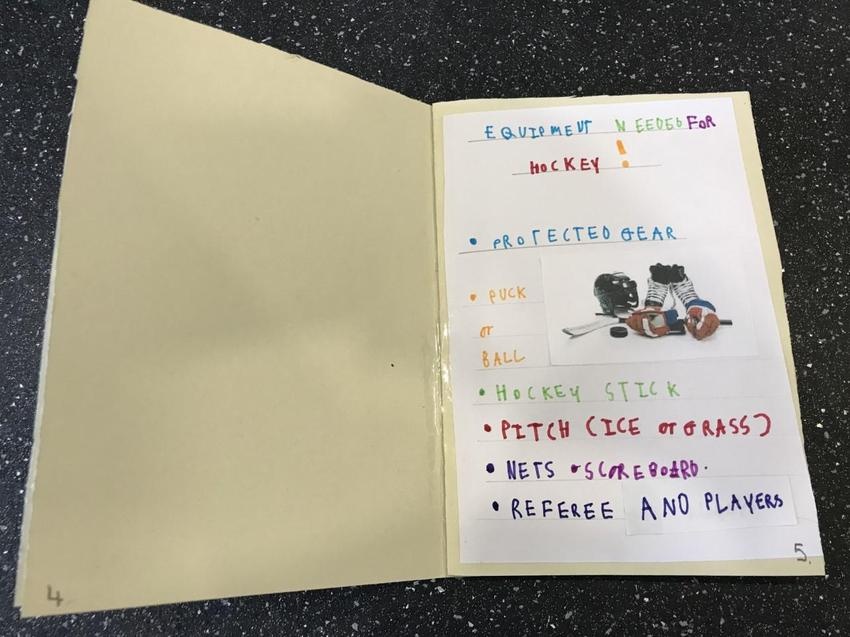 EQUIPMENT NEEDED FOR
HOCKEY !
• PROTECTED GEAR
• PUCK
or
BALL
• HOCKEY STICK
• PITCH (ICE or GRASS)
• NETS • SCOREBOARD.
• REFEREE AND PLAYERS
4
5.